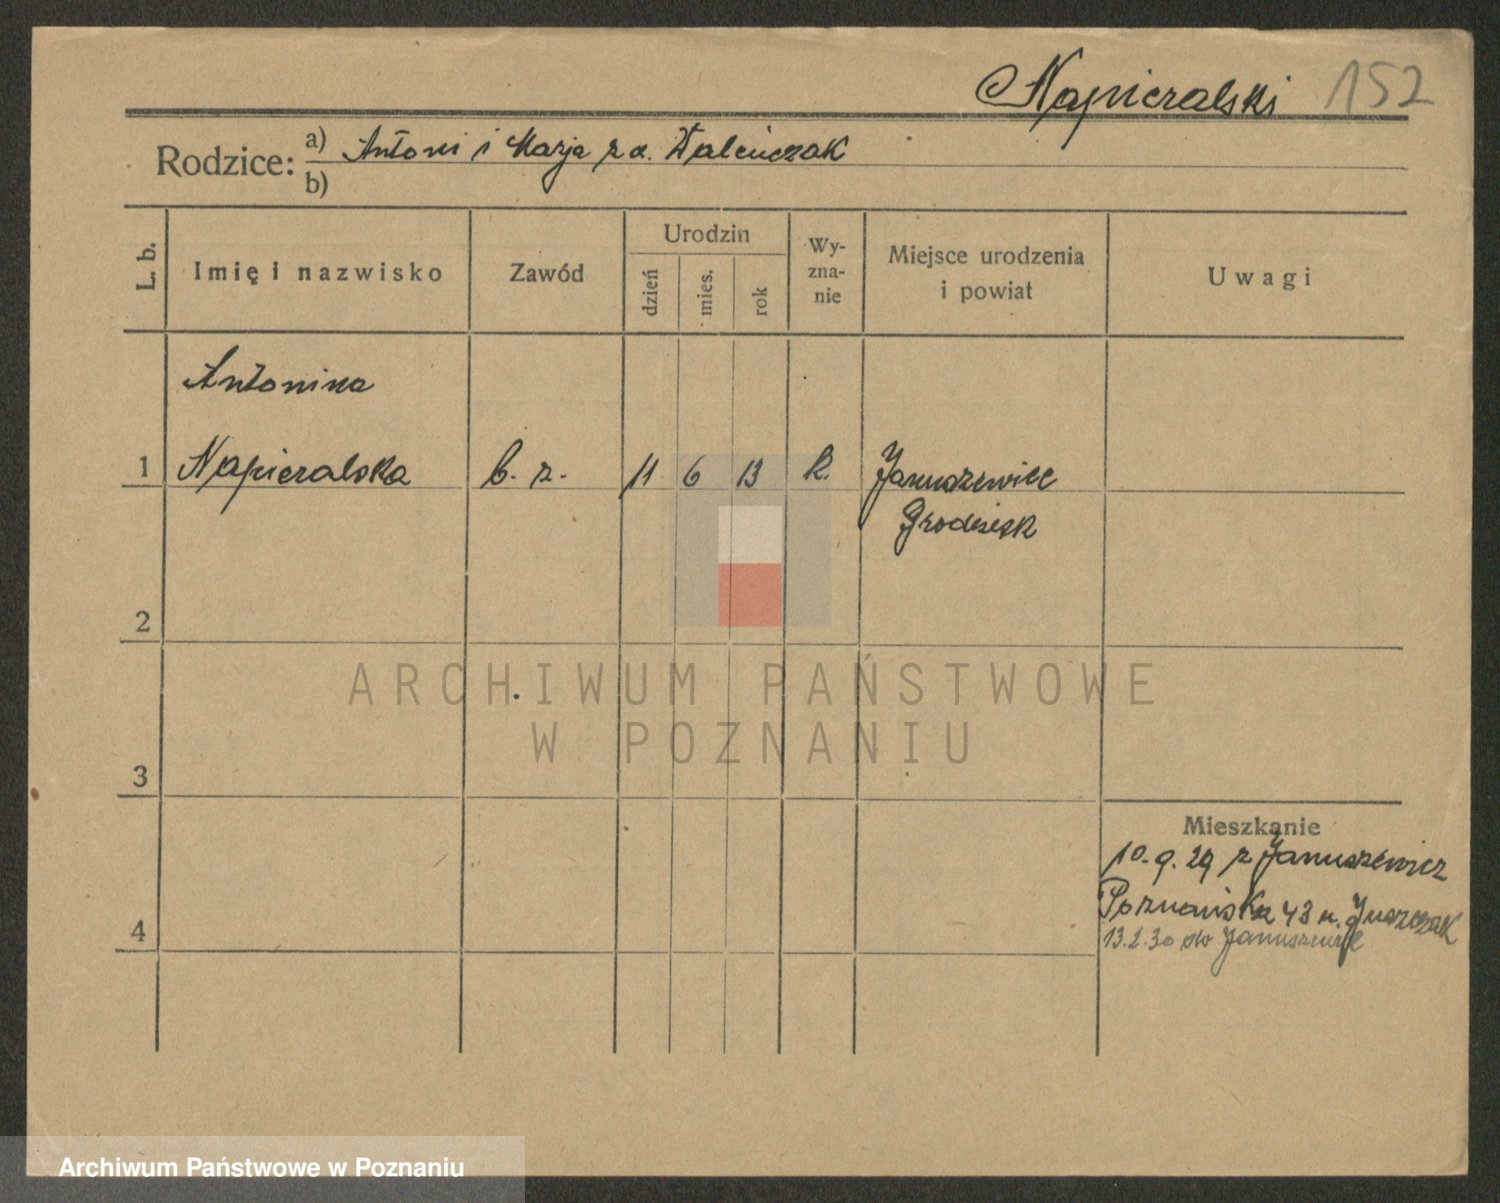 Napieralski 152
Rodzice: a) Antoni i Marja z d. Walenczak
b)
L. b.
Imię i nazwisko
Zawód
Urodzin
dzień
mies.
rok
Wy-
zna-
nie
Miejsce urodzenia
i powiat
Uwagi
Antonina
1 Napieralska b. z. 11 6 13 k. Januszewice
Grodzisk
2
ARCHIWUM PAŃSTWOWE
W POZNANIU
3
Mieszkanie
10.9.29 z Januszewicz
Poznańska 43 u. Juszczak
4
13.2.30 do Januszewic
Archiwum Państwowe w Poznaniu